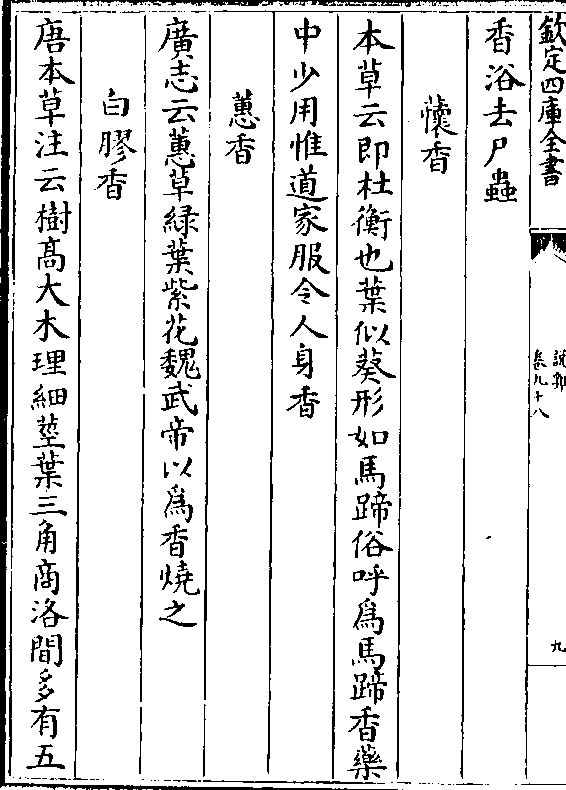 欽定四庫全書
說郛
卷九十八
九
香浴去尸蟲
懷香
本草云即杜衡也葉似葵形如馬蹄俗呼爲馬蹄香藥
中少用惟道家服令人身香
蕙香
廣志云蕙草緑葉紫花魏武帝以爲香燒之
白膠香
唐本草注云樹髙大木理細莖葉三角商洛間多有五